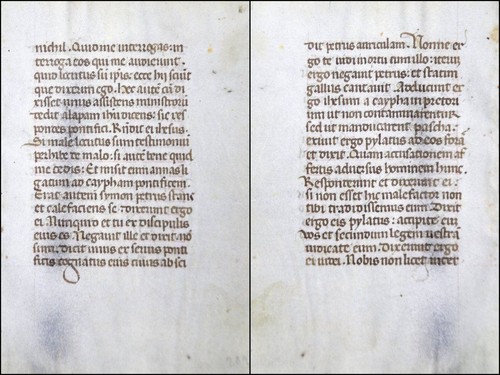 nichil. Quid me interrogas: in
terroga eos qui me audierunt
quid locutus sū ipīs: ecce hij sciūt
que dixerim ego. hec autē cū di
xisset unus assistens ministrorū
dedit alapam ihu dicens: sic res
pondes pontifici. Rñdit ei ihesus.
Si male locutus sum testimoniū
perhibe de malo: si autē bene quid
me cedis: Et misit eum annas li
gatum ad caypham pontificem.
Erat autem symon petrus stans
et calefaciens se. dixerunt ergo
ei. Nunquid et tu ex discipulis
eius es. Negauit ille et dixit. nō
sum. Dicit unus ex seruis ponti
ficis cognatus eius cuius absci
dit petrus auriculam. Nonne er
go te uidi in ortu cum illo: iterū
ergo negauit petrus: et statim
gallus cantauit. Adducunt er
go ihesum a caypha in pretori
um ut non contaminarentur
sed ut manducarent pascha.
exiuit ergo pylatus ad eos foras
et dixit. Quam accusationem af
fertis aduersus hominem hunc.
Responderunt et dixerunt ei:
si non esset hic malefactor non
tibi tradidissemus eum. Dixit
ergo eis pylatus: accipite eum
uos et secundum legem uestrā
iudicate eum. Dixerunt ergo
ei iudei. Nobis non licet inter